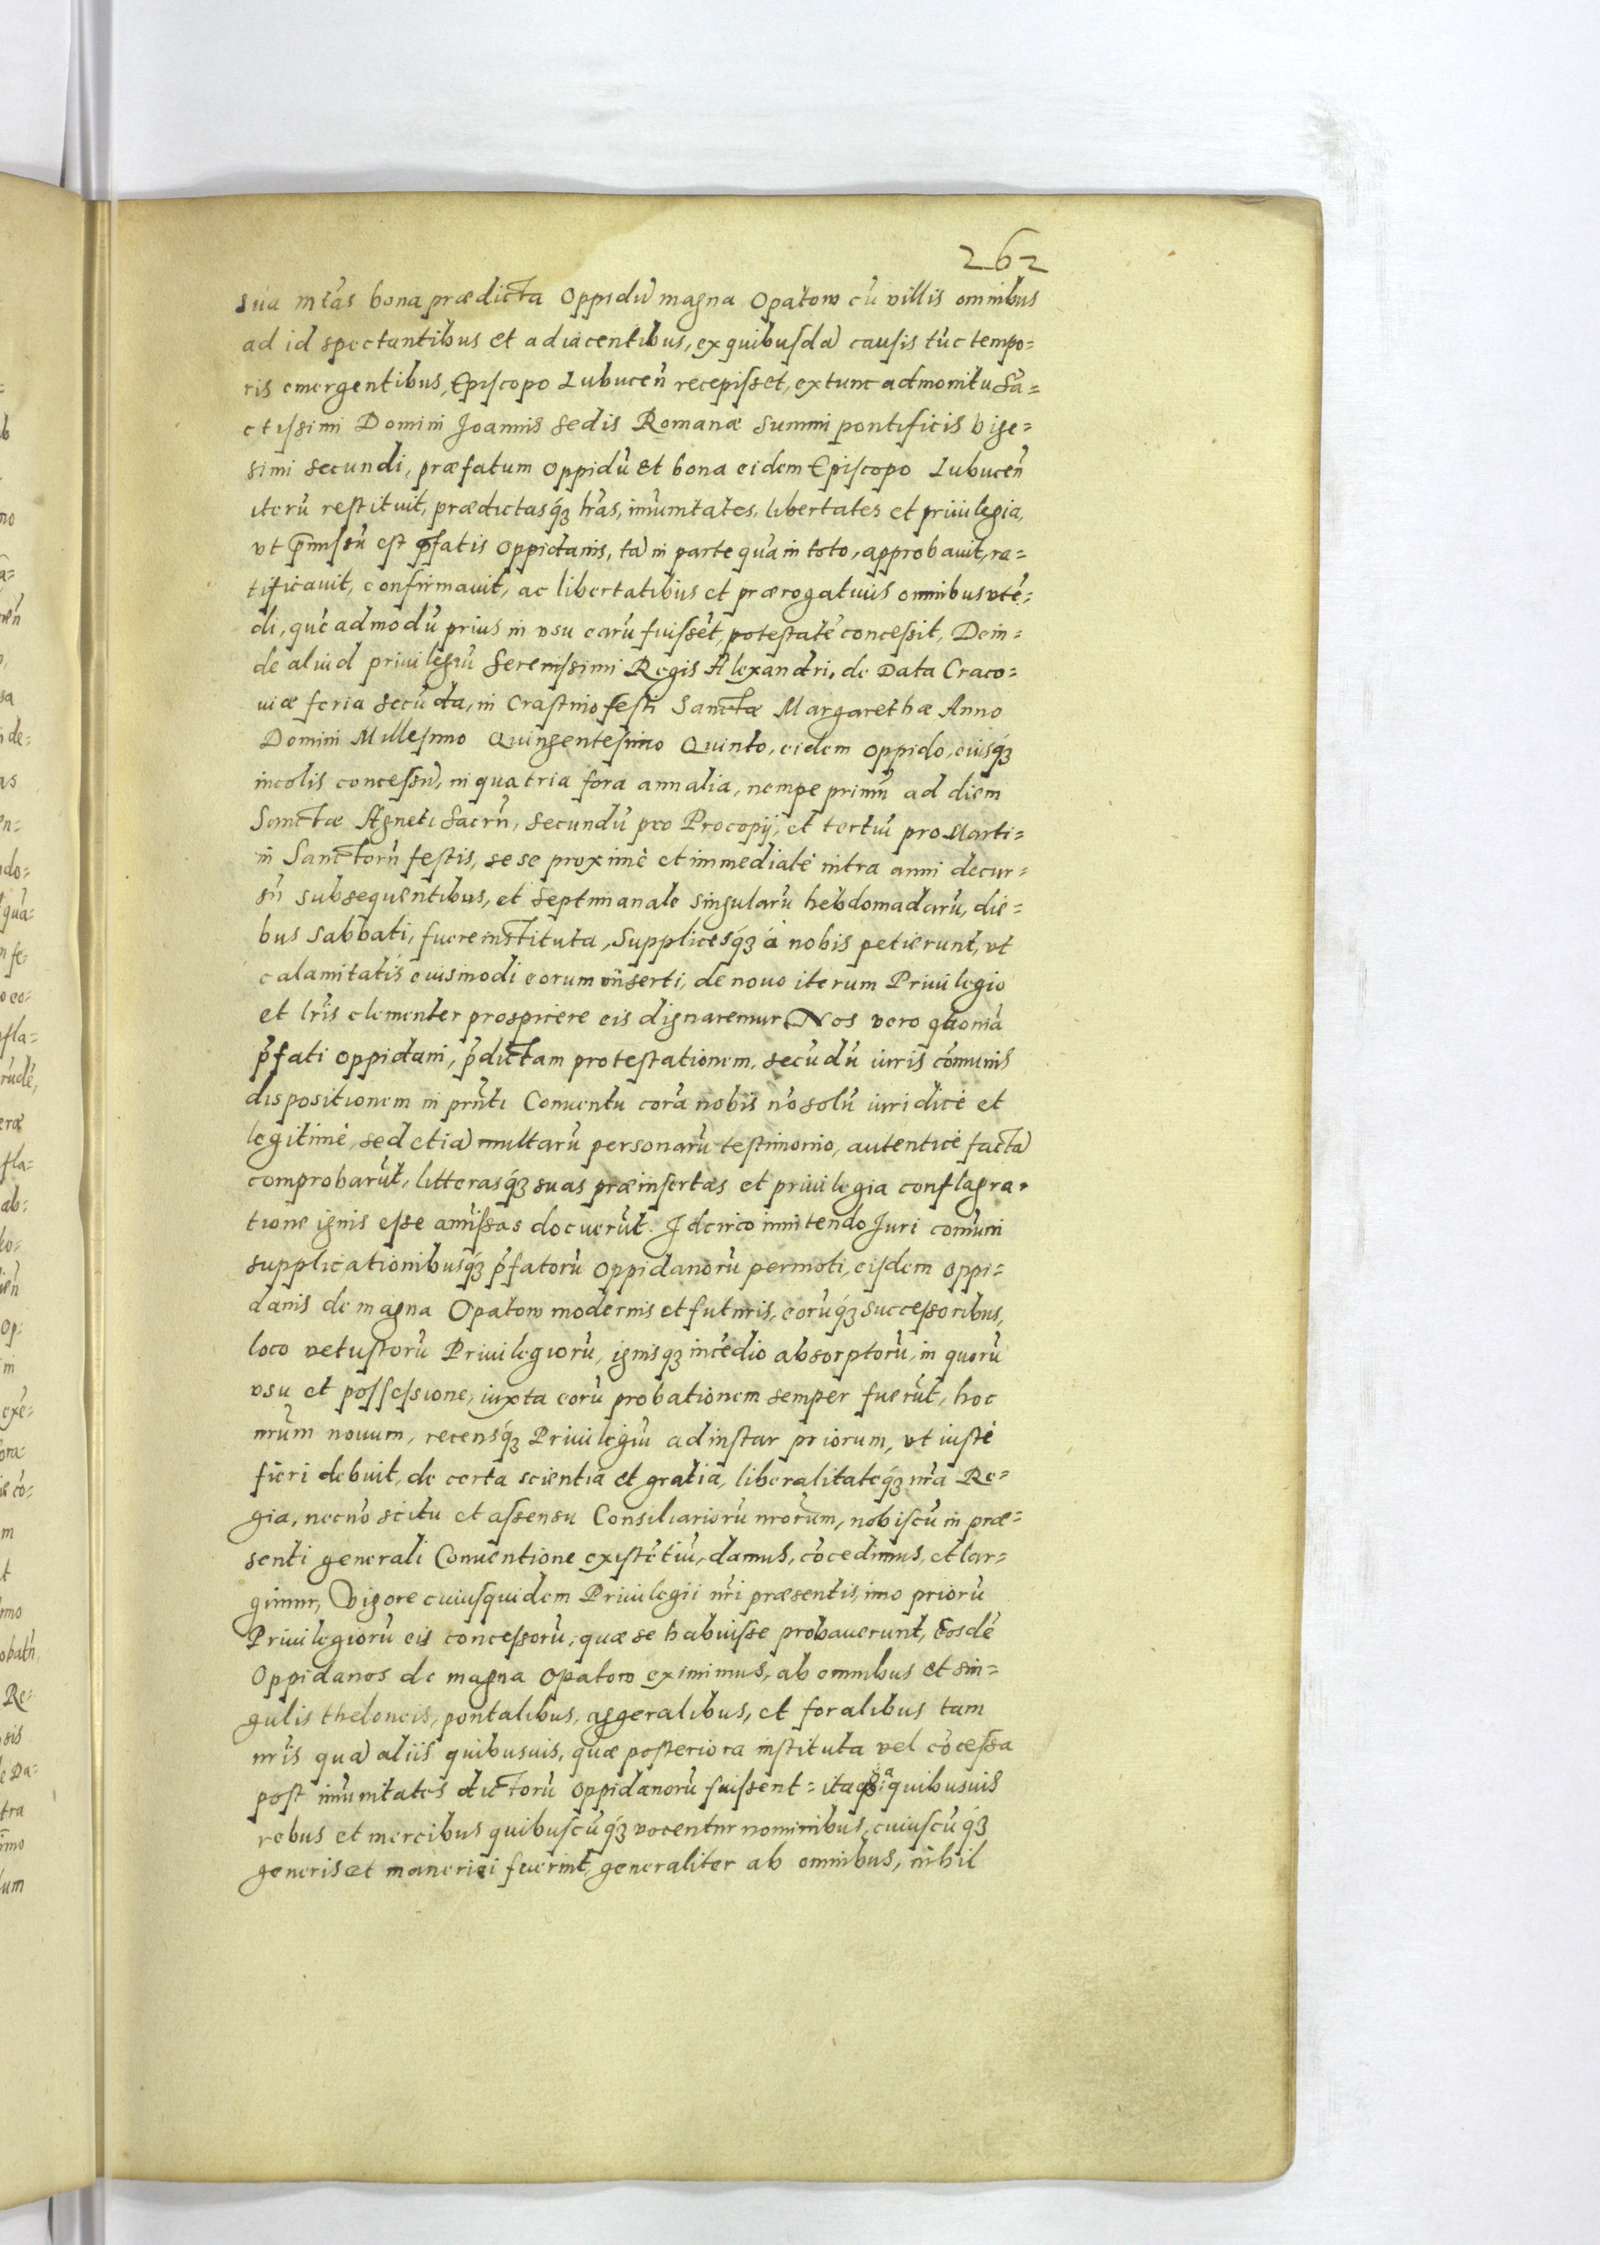 262
sua mtas bona prædicta Oppidũ magna Opatow cũ villis omnibus
ad id spectantibus et adiacentibus, ex quibusdã causis tũc tempo=
ris emergentibus, Episcopo Lubuceñ recepisset, ex tunc admonitu Sã=
ctissimi Domini Joannis sedis Romanæ summi pontificis vige=
simi secundi, præfatum oppidũ et bona eidem Episcopo Lubuceñ
iterũ restituit, prædictasq́3 lr̃as, im̃unitates, libertates et priuilegia,
vt p̃missũ est p̃fatis Oppidanis, tã in parte quã in toto, approbauit, ra=
tificauit, confirmauit, ac libertatibus et prærogatiuis omnibus vtẽ=
di, quẽadmodũ prius in vsu earũ fuissẽt, potestatẽ concessit, Dein=
de aliud priuilegiũ Serenissimi Regis Alexandri, de Data Craco=
uiæ feria secũda, in Crastino festi Sanctæ Margarethæ Anno
Domini Millesimo Quingentesimo Quinto, eidem oppido, eiusq́3
incolis concessũ, in quo tria fora annalia, nempe primũ ad diem
Sanctæ Agneti Sacrũ, secundũ pro Procopij, et tertiũ pro Marti=
ni Sanctorũ festis, se se proximè et immediatè intra anni decur=
sũ subsequentibus, et Septimanale singularũ hebdomadarũ, die=
bus Sabbati, fuere instituta, Supplicesq́3 à nobis petierunt, vt
calamitatis euismodi eorum miserti, de nouo iterum Priuilegio
et lr̃is clementer prospicere eis dignaremur. Nos vero quoniã
p̃fati oppidani, p̃dictam protestationem, secũdũ iuris cõmunis
dispositionem in pr̃nti Conuentu corã nobis nõ solũ iuridicè et
legitimè, sed etiã multarũ personarũ testimonio, autenticè factã
comprobarũt, litterasq́3 suas præinsertas et priuilegia conflagra=
tione ignis esse amissas docuerũt. Idcirco innitendo Juri comũni
supplicationibusq́3 p̃fatorũ Oppidanorũ permoti, eisdem oppi=
danis de magna Opatow modernis et futuris, eorũq́3 successoribus,
loco vetustorũ Priuilegiorũ, ignisq3 incẽdio absorptorũ, in quorũ
vsu et possessione, iuxta eorũ probationem semper fuerũt, hoc
nr̃um nouum, recensq́3 Priuilegiũ ad instar priorum, vt iustè
fieri debuit, de certa scientia et gratia, liberalitateq́3 nr̃a Re=
gia, necnõ scitu et assensu Consiliariorũ nr̃orum, nobiscũ in præ=
senti generali Conuentione existẽtiũ, damus, cõcedimus, et lar=
gimur, Vigore cuiusquidem Priuilegii nr̃i præsentis, imo priorũ
Priuilegiorũ eis concessorũ, quæ se habuisse probauerunt, Eosdẽ
Oppidanos de magna Opatow eximimus, ab omnibus et sin=
gulis theloneis, pontalibus, aggeralibus, et foralibus tam
nr̃is quã aliis quibusuis, quæ posteriora instituta vel cõcessa
post im̃unitates dictorũ Oppidanorũ fuissent= ita quibusuis
rebus et mercibus quibuscũq́3 vocentur nominibus, cuiuscũq́3
generis et maneriei fuerint, generaliter ab omnibus, nihil